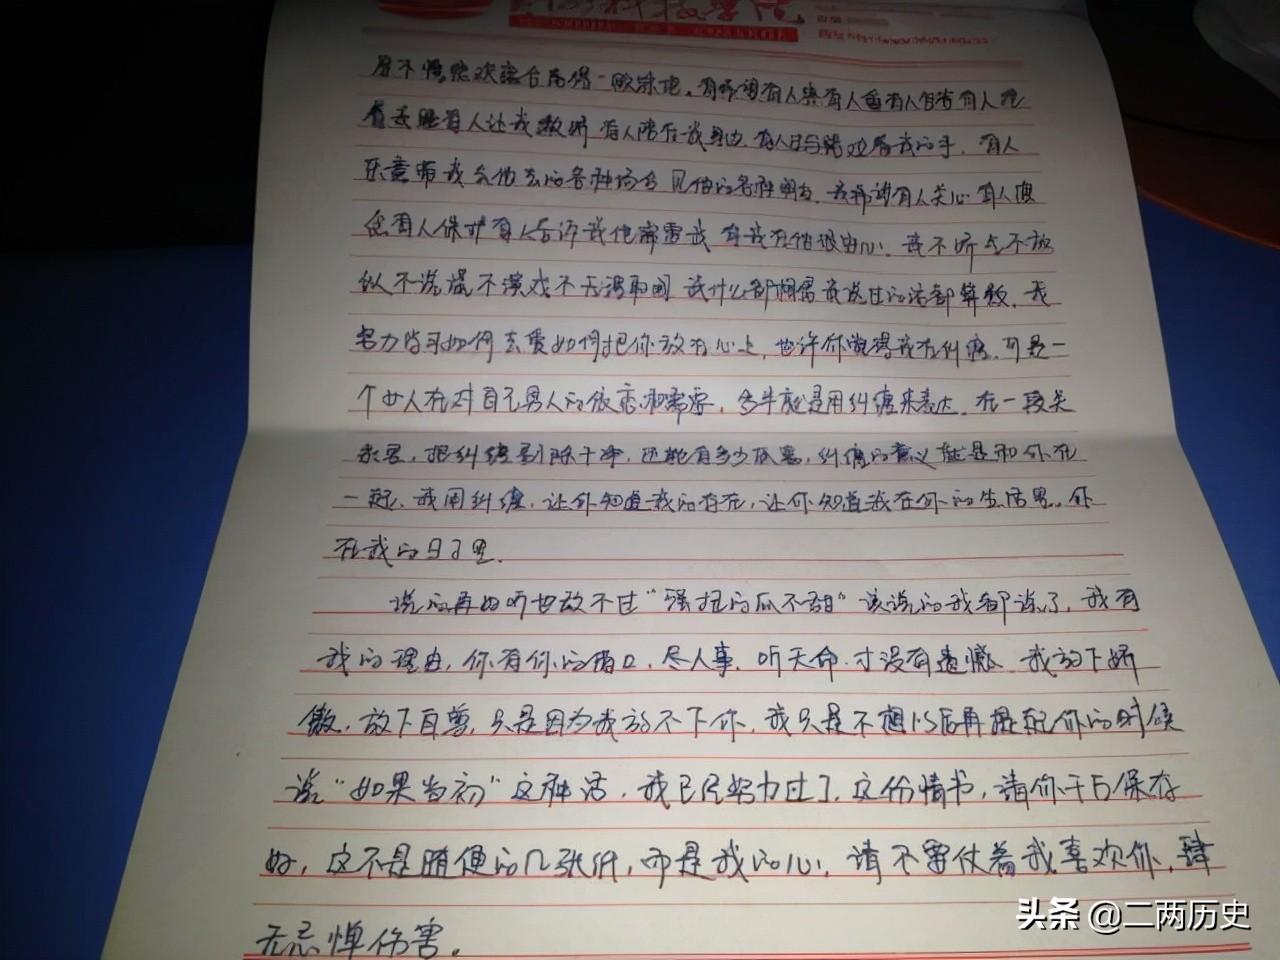 科技学院
有人
着去睡有人让我撒娇有人陪在我身边,有人
乐意带我去他去的各种场合见他的各种朋友,我希望有人关心有人
有人保护有人告诉我他需要我有我在他很安心,我不娇气不放
纵不说谎不演戏不无理取闹 说什么都相信 我说过的话都算数,我
努力学习如何去爱如何把你放在心上,也许你觉得我在纠缠,可是一
个女人在对自己男人的依恋和需要,多半就是用纠缠来表达,在一段关
系里,把纠缠剔除干净,还能有多少,纠缠的意义就是和你在
一起,我用纠缠,让你知道我的存在,让你知道我在你的生活里。你
在我的日子里.
说的再好听也敌不过“强扭的瓜不甜”该说的我都说了,我有
我的理由,你有你的借口,尽人事,听天命,才没有遗憾,我放下骄
傲,放下自尊,只是因为我放不下你,我只是不想以后再提起你的时候
说“如果当初”这种话,我已尽努力过了,这份情书,请你千万保存
好,这不是随便的几张纸,而是我的心,请不要仗着我喜欢你,肆
无忌惮伤害。
头条 @二两历史